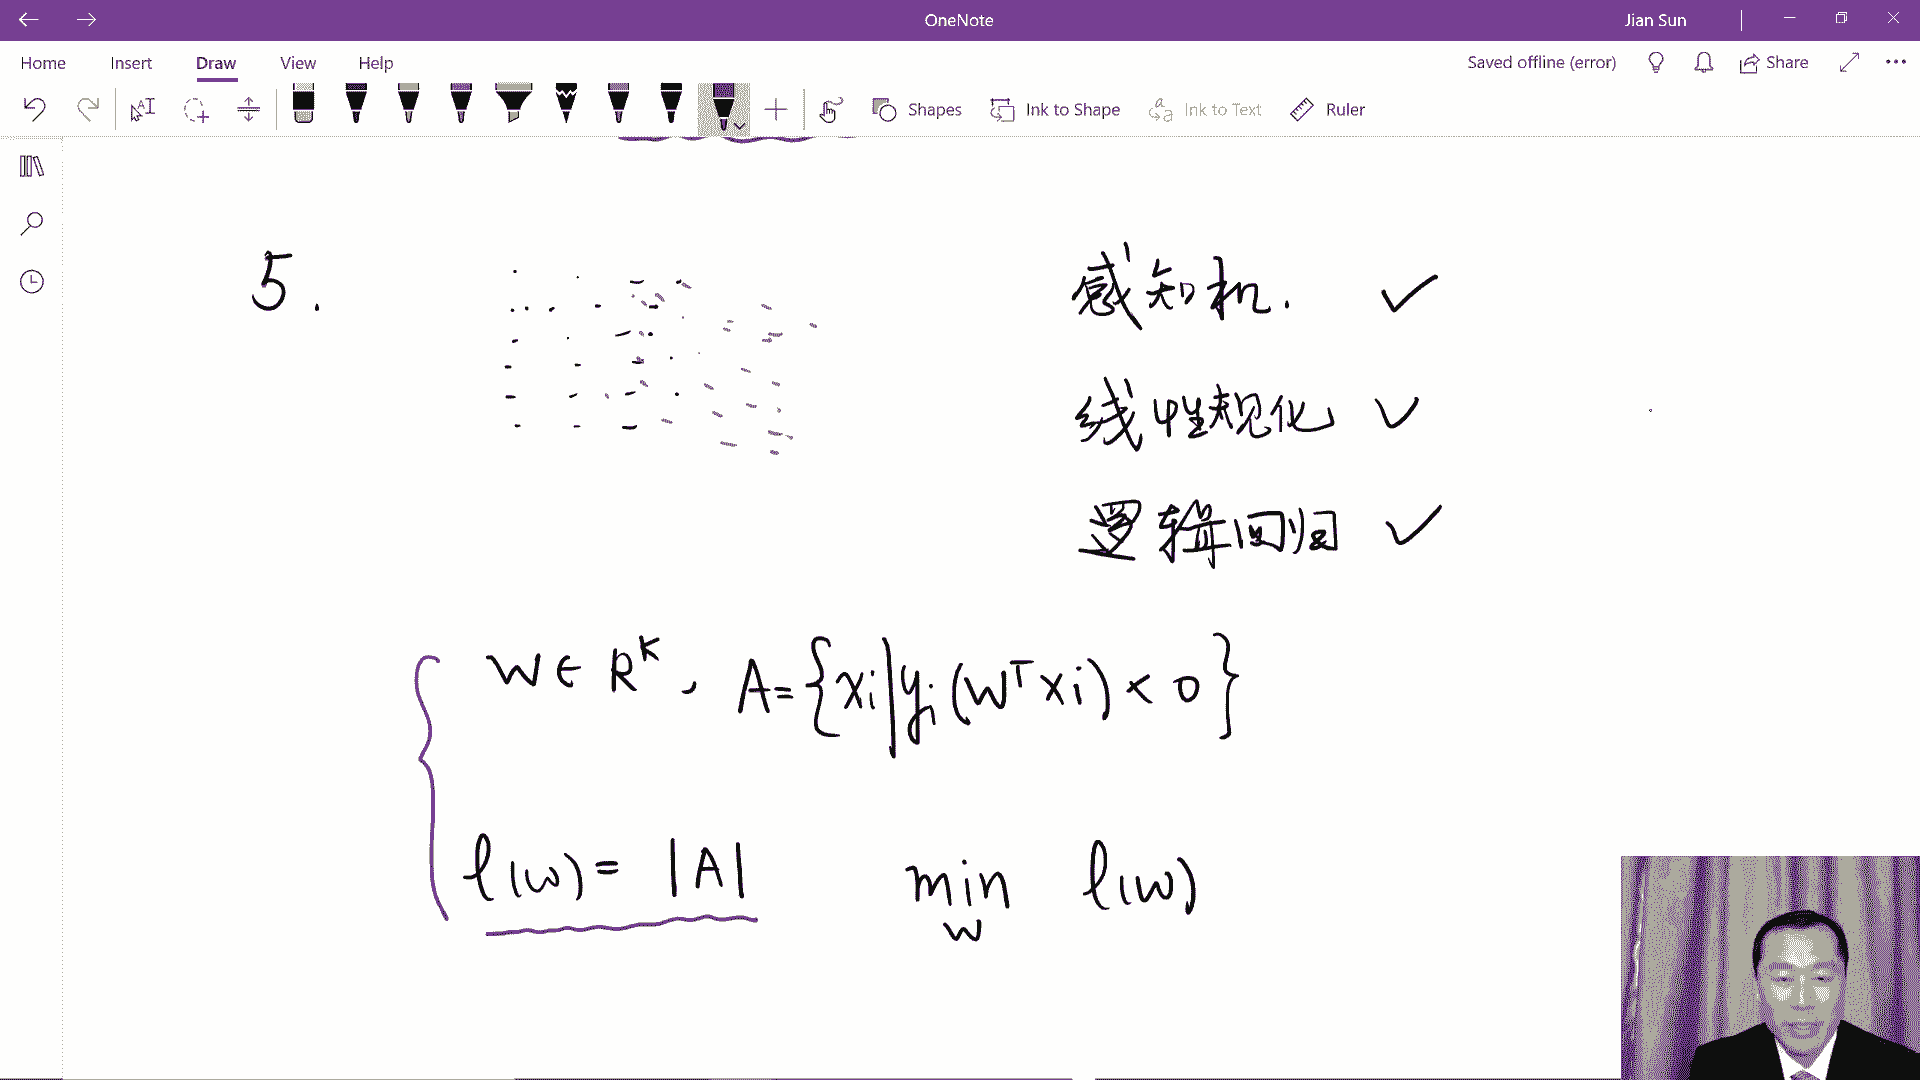 OneNote
Jian Sun
Home Insert Draw View Help
Saved offline (error) Share
Shapes Ink to Shape Ink to Text Ruler
5.
感知机. ✓
线性规化 ✓
逻辑回归 ✓
W ∈ R^K, A = {xi | yi (W^T xi) < 0}
l(w) = |A| min l(w)
w